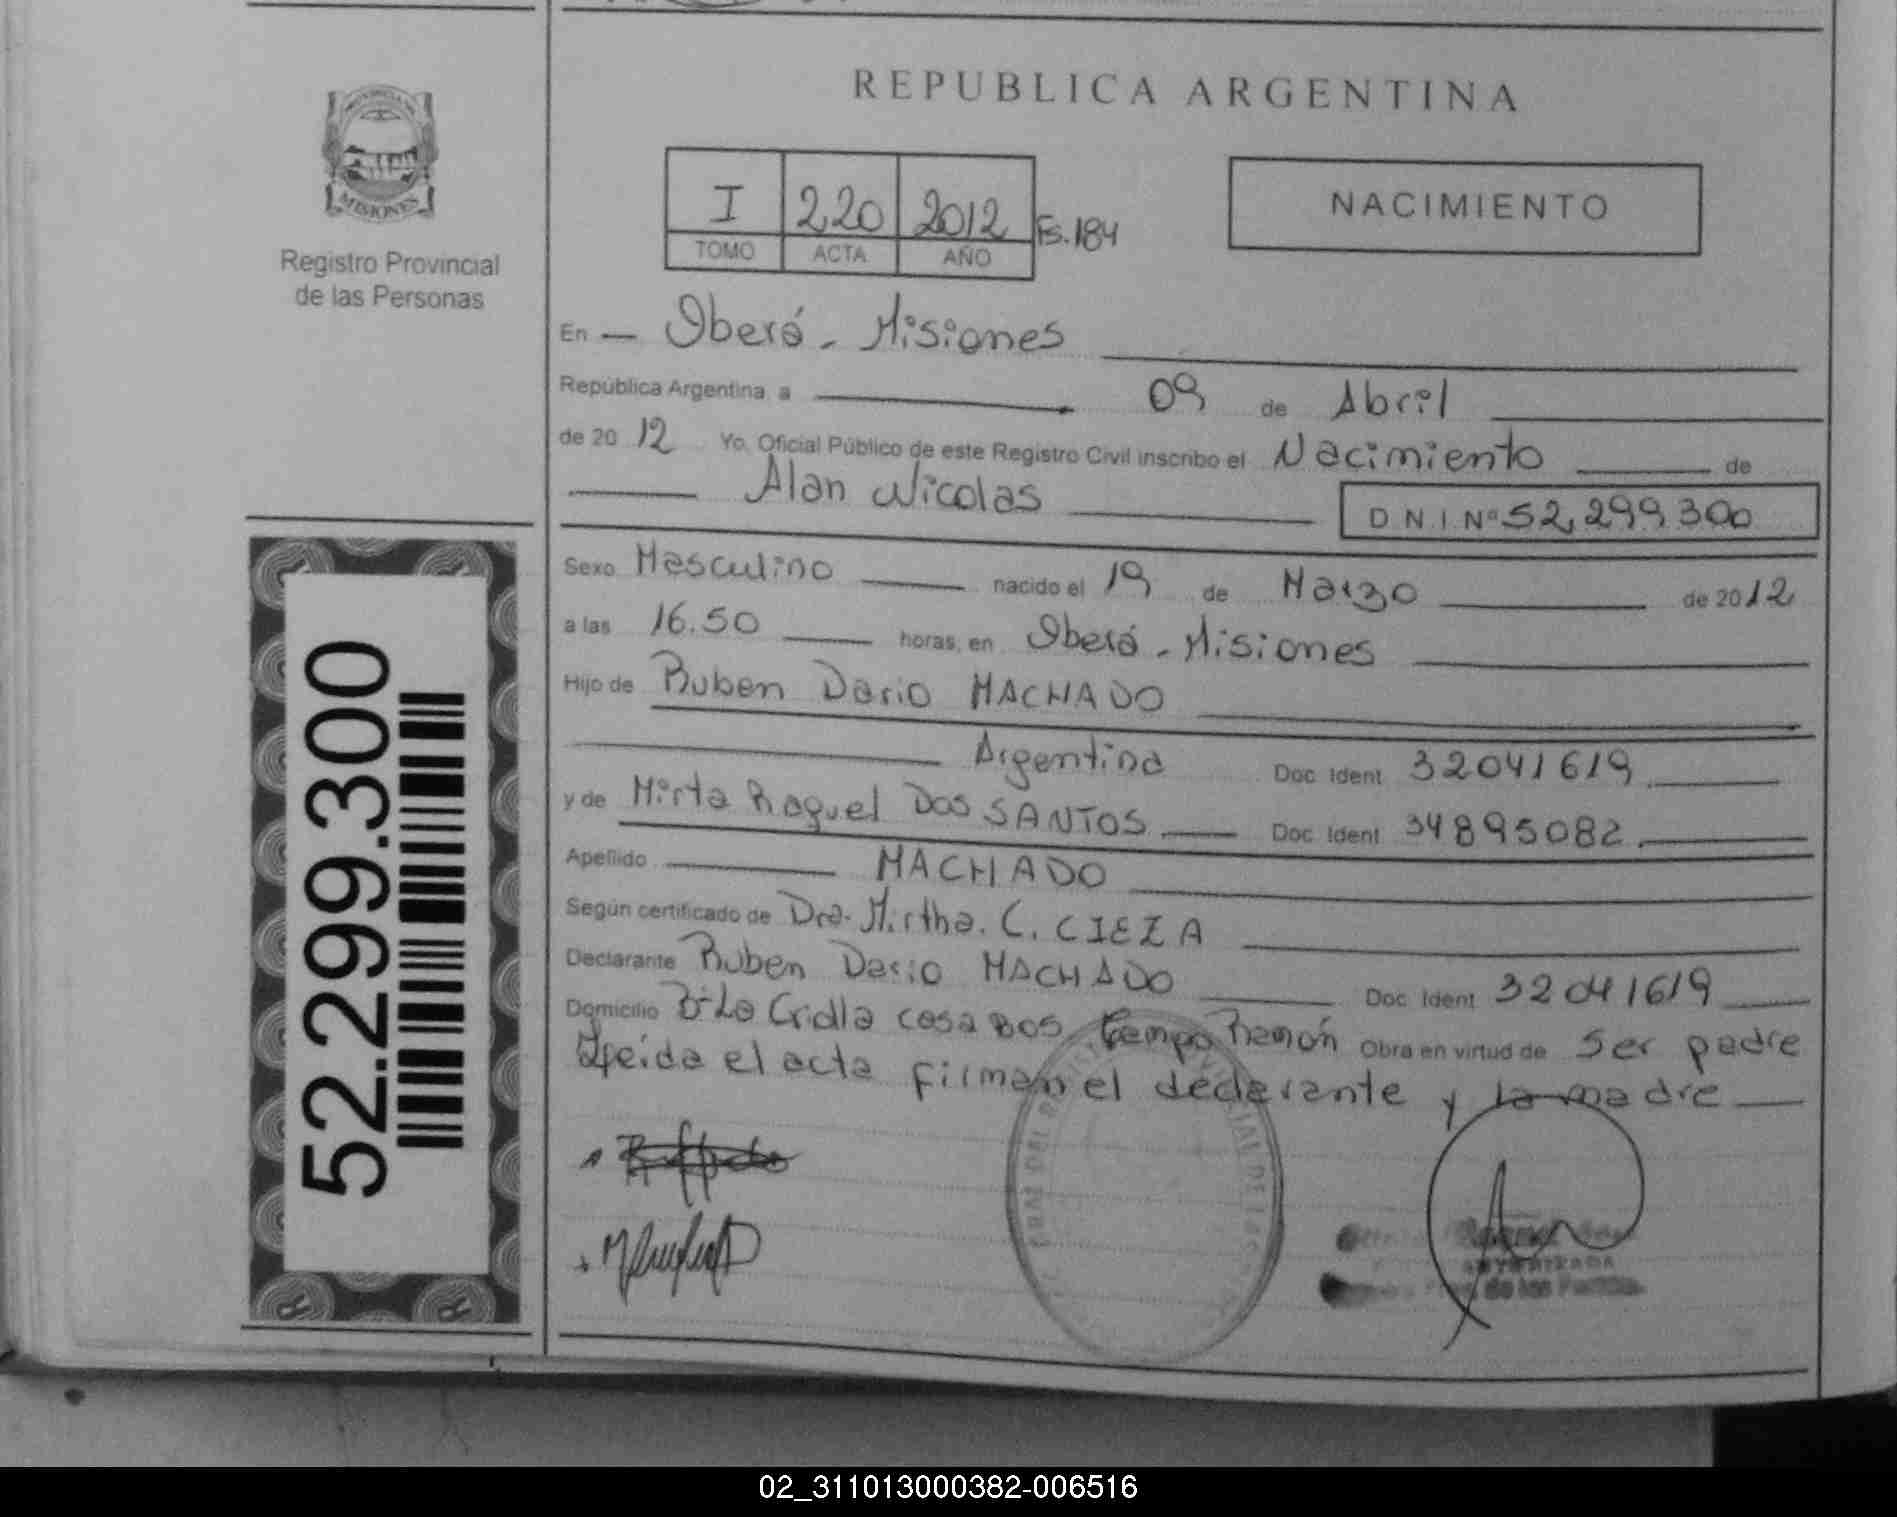 REPUBLICA ARGENTINA
PROVINCIA DE
MISIONES
Registro Provincial
de las Personas
I 220 2012 Fs.184
TOMO ACTA AÑO
NACIMIENTO
En — Oberá - Misiones
República Argentina a 09 de Abril
de 2012 Yo, Oficial Público de este Registro Civil inscribo el Nacimiento de
Alan Nicolas
D N I Nº 52,299,300
Sexo Masculino nacido el 19 de Marzo de 2012
a las 16.50 horas, en Oberá - Misiones
Hijo de Ruben Dario MACHADO
Argentina Doc. Ident 32041619
y de Mirta Raquel Dos SANTOS Doc. Ident 34895082
Apellido MACHADO
Según certificado de Dra. Mirtha. C. CIEZA
Declarante Ruben Dario MACHADO Doc. Ident 32041619
Domicilio Bº La Criolla casa Campo Ramón Obra en virtud de Ser padre
Leída el acta firman el declarante y la madre
52.299.300
02_311013000382-006516